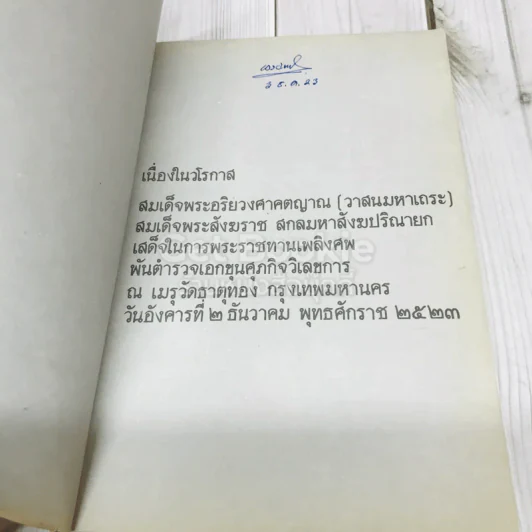 ๒ ธ.ค. ๒๓
เนื่องในวโรกาส
สมเด็จพระอริยวงศาคตญาณ (วาสนมหาเถระ)
สมเด็จพระสังฆราช สกลมหาสังฆปริณายก
เสด็จในการพระราชทานเพลิงศพ
พันตำรวจเอกขุนศุภกิจวิเลขการ
ณ เมรุวัดธาตุทอง กรุงเทพมหานคร
วันอังคารที่ ๒ ธันวาคม พุทธศักราช ๒๕๒๓